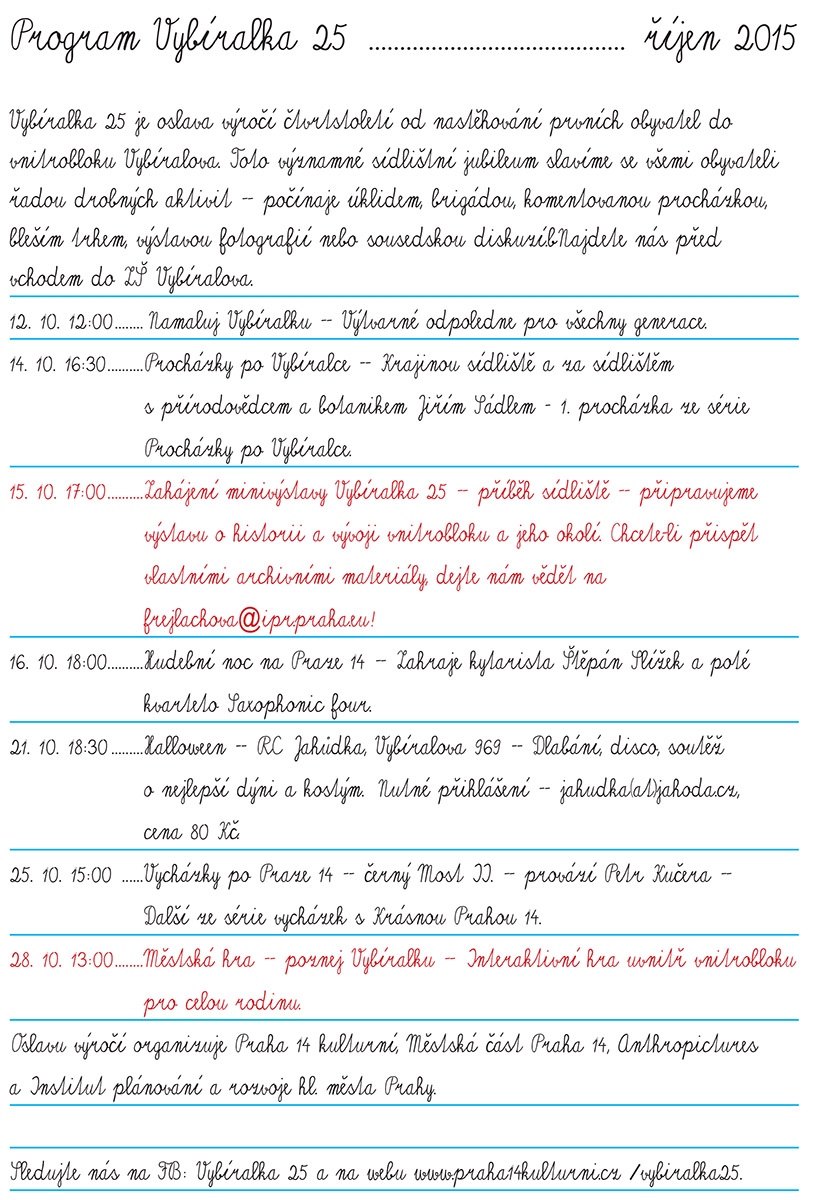 Program Vybíralka 25 ......................................... říjen 2015
Vybíralka 25 je oslava výročí čtvrtstoletí od nastěhování prvních obyvatel do
vnitrobloku Vybíralova. Toto významné sídlištní jubileum slavíme se všemi obyvateli
řadou drobných aktivit – počínaje úklidem, brigádou, komentovanou procházkou,
bleším trhem, výstavou fotografií nebo sousedskou diskuzíbNajdete nás před
vchodem do ZŠ Vybíralova.
12. 10. 12:00....... Namaluj Vybíralku – Výtvarné odpoledne pro všechny generace.
14. 10. 16:30.........Procházky po Vybíralce – Krajinou sídliště a za sídlištěm
s přírodovědcem a botanikem Jiřím Sádlem - 1. procházka ze série
Procházky po Vybíralce.
15. 10. 17:00.........Zahájení minivýstavy Vybíralka 25 – příběh sídliště – připravujeme
výstavu o historii a vývoji vnitrobloku a jeho okolí. Chcete-li přispět
vlastními archivními materiály, dejte nám vědět na
frejlachova@ipr.praha.eu!
16. 10. 18:00.........Hudební noc na Praze 14 – Zahraje kytarista Štěpán Slížek a poté
kvarteto Saxophonic four.
21. 10. 18:30........Halloween – RC Jahůdka, Vybíralova 969 – Dlabání, disco, soutěž
o nejlepší dýni a kostým. Nutné přihlášení – jahudka(at)jahoda.cz,
cena 80 Kč.
25. 10. 15:00 ......Vycházky po Praze 14 – černý Most II. – provází Petr Kučera –
Další ze série vycházek s Krásnou Prahou 14.
28. 10. 13:00........Městská hra – poznej Vybíralku – Interaktivní hra uvnitř vnitrobloku
pro celou rodinu.
Oslavu výročí organizuje Praha 14 kulturní, Městská část Praha 14, Anthropictures
a Institut plánování a rozvoje hl. města Prahy.
Sledujte nás na FB: Vybíralka 25 a na webu www.praha14kulturni.cz /vybiralka25.